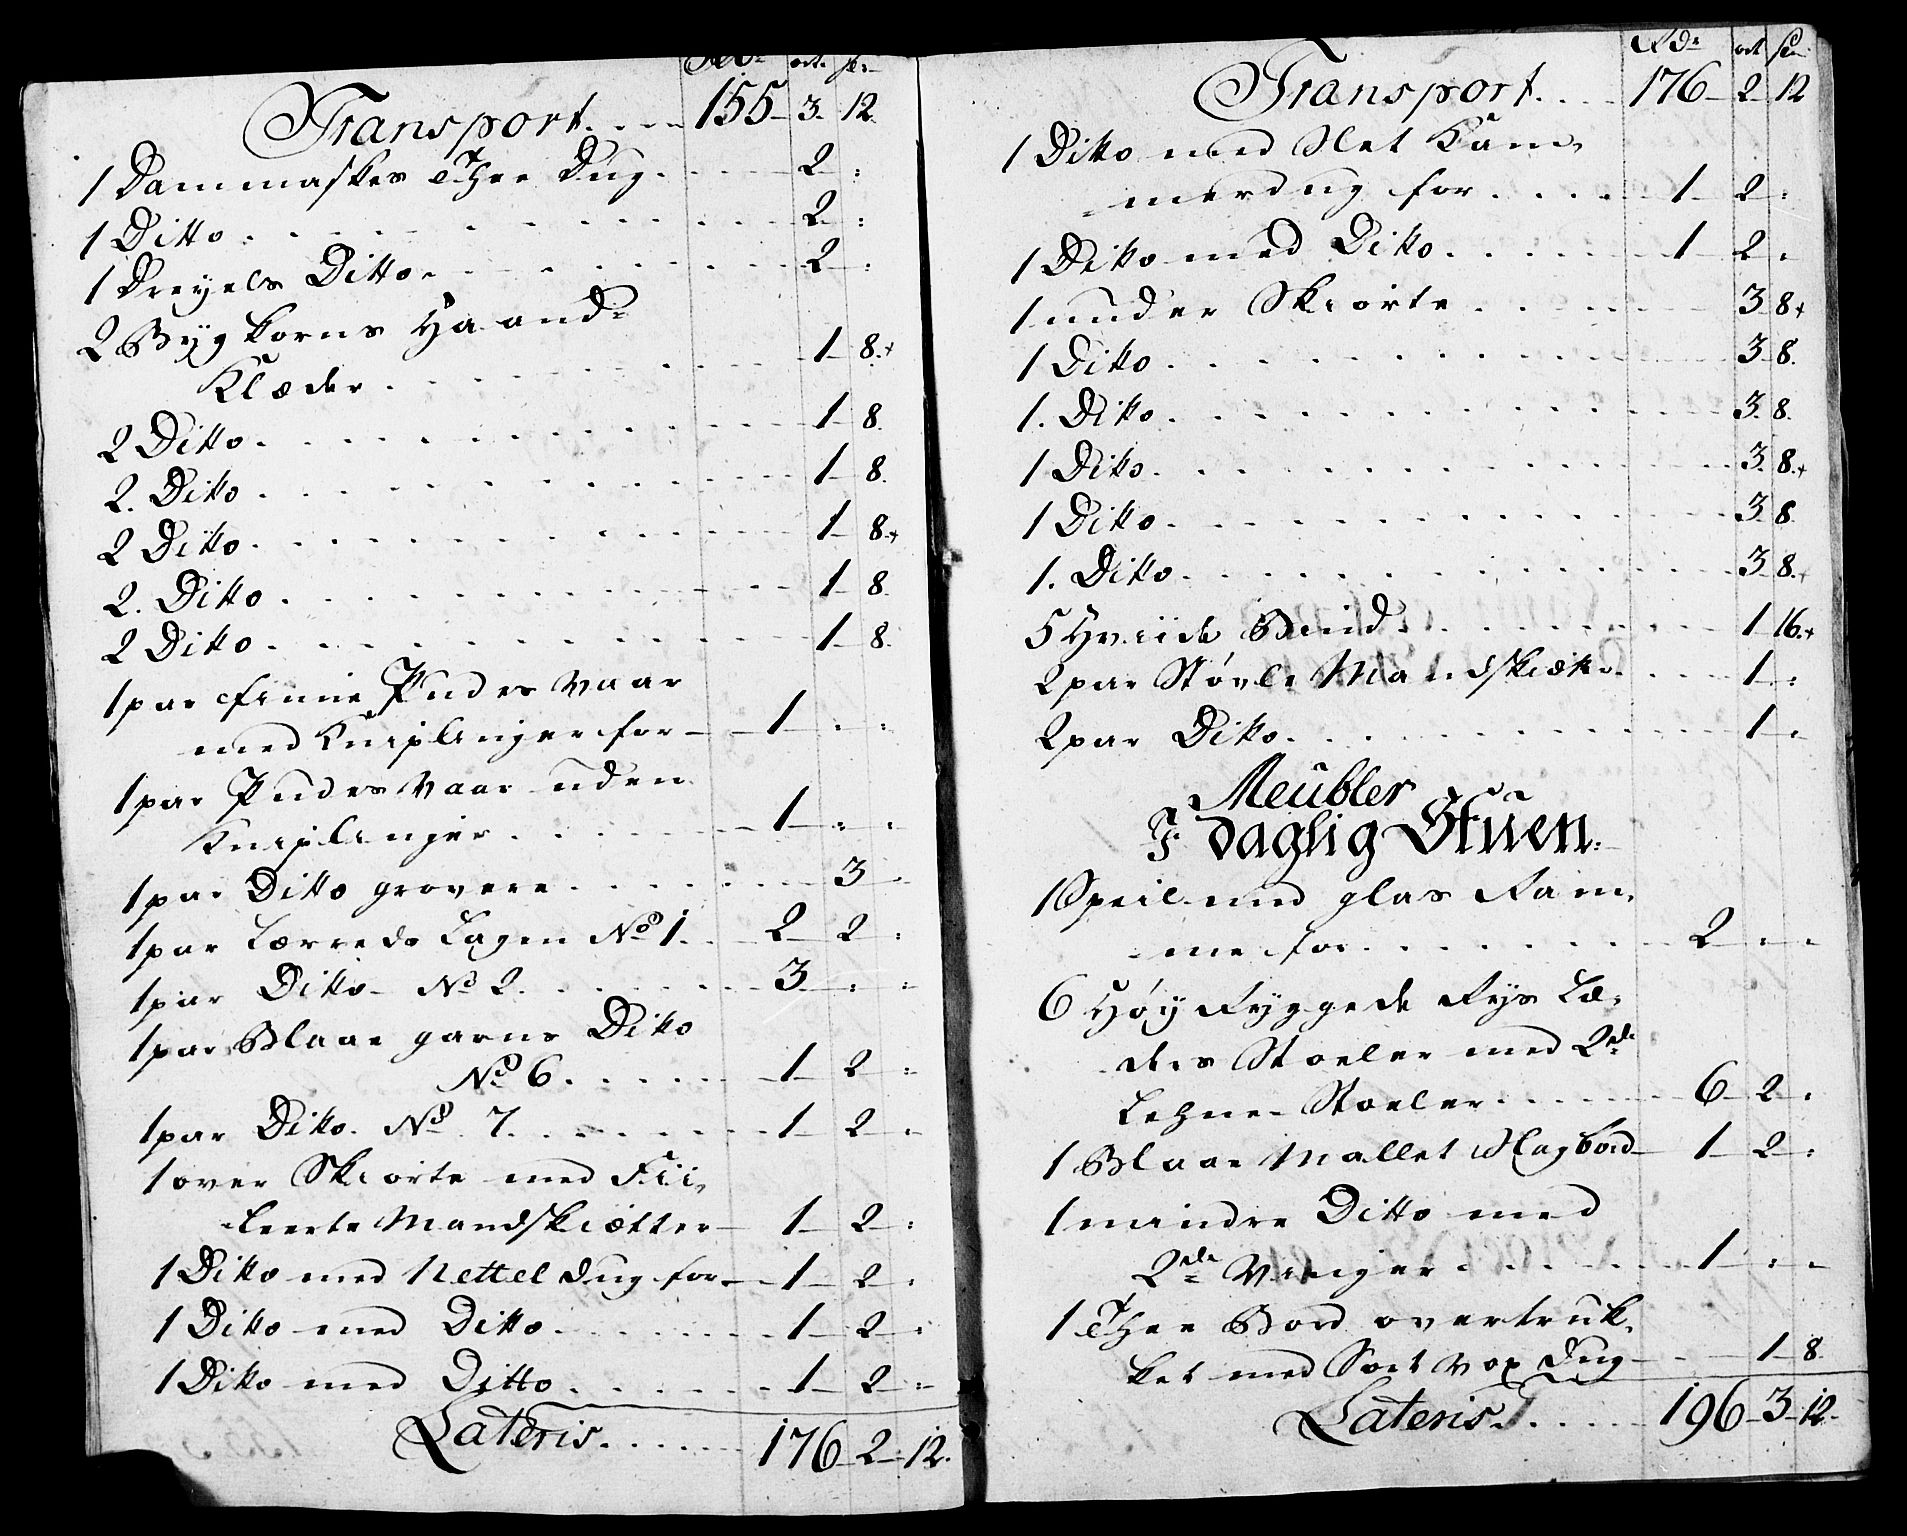 Rdr ort sk:
Transport.... 155 3. 12.
1 Dammaskes Thee Dug..... 2 :
1 Ditto........... 2 :
1 Dreyels Ditto........ 2 :
2 Bygkorns Haand=
Klæder......... 1 8.+
2 Ditto........... 1 8.
2. Ditto........... 1 8.
2 Ditto........... 1 8.+
2. Ditto........... 1 8.
2 Ditto........... 1 8.
1 par fiine Pudes Vaar
med Kniplinger for 1 : :
1 par Pudes Vaar uden
Kniplinger....... 1 : :
1 par Ditto grovere....... 3 :
1 par Lærreds Lagen No 1... 2 2 :
1 par Ditto No 2....... 3 : :
1 par Blaae garns Ditto
No 6...... 1 2 :
1 par Ditto. No 7....... 1 2 :
1 over Skiorte med Fii=
leerte Mandskiætter 1 2 :
1 Ditto med Nettel dug for 1 2 :
1 Ditto med Ditto...... 1 2 :
1 Ditto med Ditto...... 1 2 :
Lateris...... 176 2 12.
Rdr ort sk:
Transport.... 176 2 12
1 Ditto med Slet Kam=
merdug for..... 1 2 :
1 Ditto med Ditto....... 1 2 :
1 under Skiorte....... 3 8+
1 Ditto........... 3 8.
1. Ditto........... 3 8.
1 Ditto........... 3 8.+
1 Ditto........... 3 8
1. Ditto........... 3 8.+
5 Hviide Bind........ 1 16.+
2 par Støvle Mandskiætt.... 1 :
2 par Ditto......... 1 :
Meubler
I daglig Stuen.
1 Speil med glas Ram=
me for......... 2 : :
6 Høy Ryggede Rys Læ=
ders Stoeler med 2de
Lehne Stoeler...... 6 2 :
1 Blaae Mallet Slagbord 1 2 :
1 mindre Ditto med
2de Vinger...... 1 : :
1 Thee Bord overtruk=
ket med Sort Vox Dug 1 8.
Lateris..... 196 3 12.